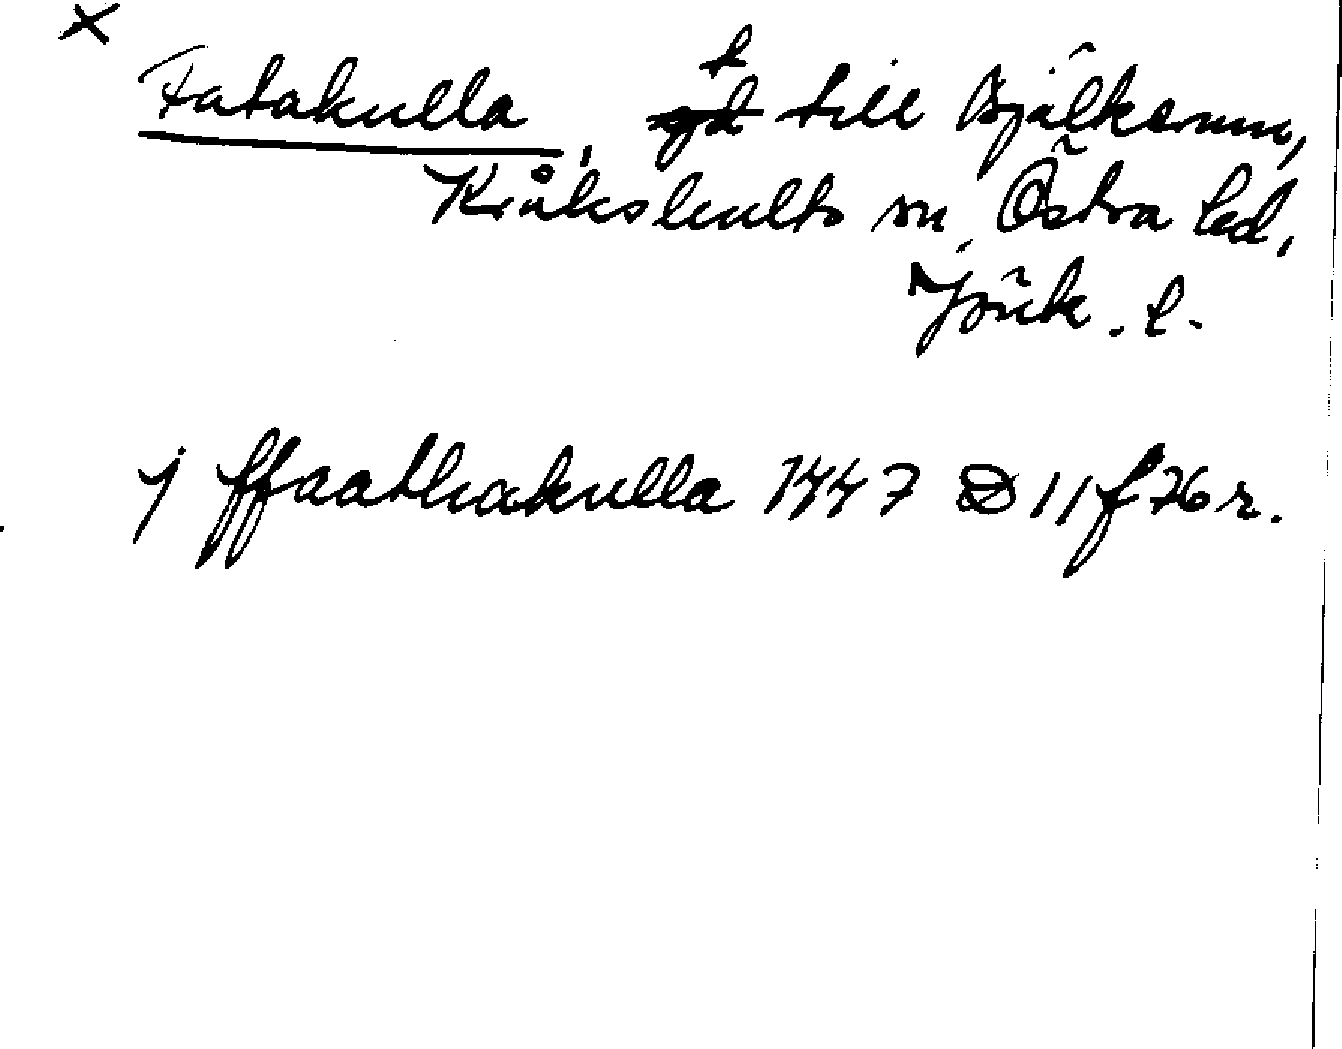 ×
Fatakulla, t till Bjälkerum,
Kråkshults sn, Östra hd,
Jönk. l.
j ffaathakulla 1447 D 11 f 76 r.